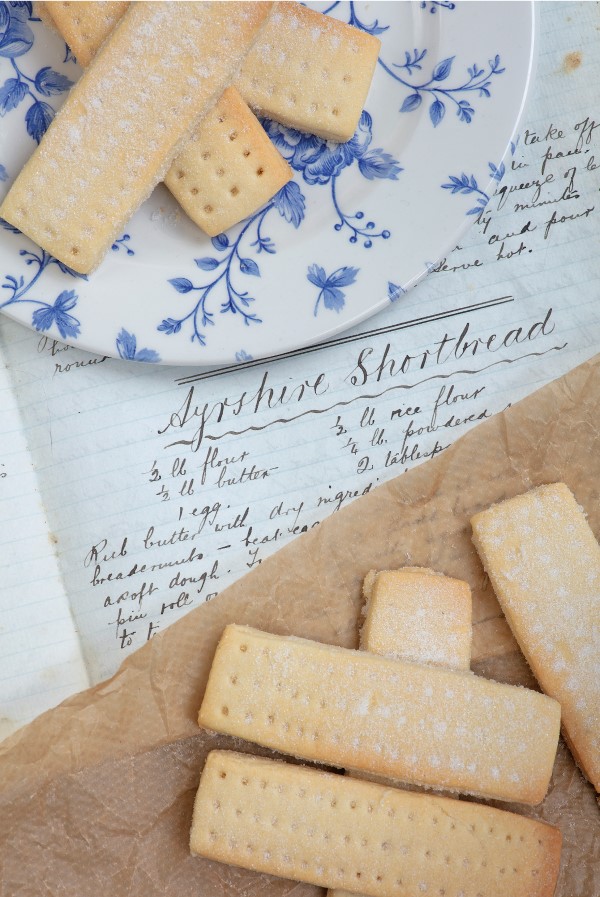 take off
in pan.
squeeze of le
ty minutes
and pour
Serve hot.
roun
Ayrshire Shortbread
½ lb flour ½ lb rice flour
½ lb butter ¼ lb. powdered
1 egg. 2 tablesp
Rub butter with dry ingredi
breadcrumbs – beat egg
a soft dough. Tu
pin roll o
to ti